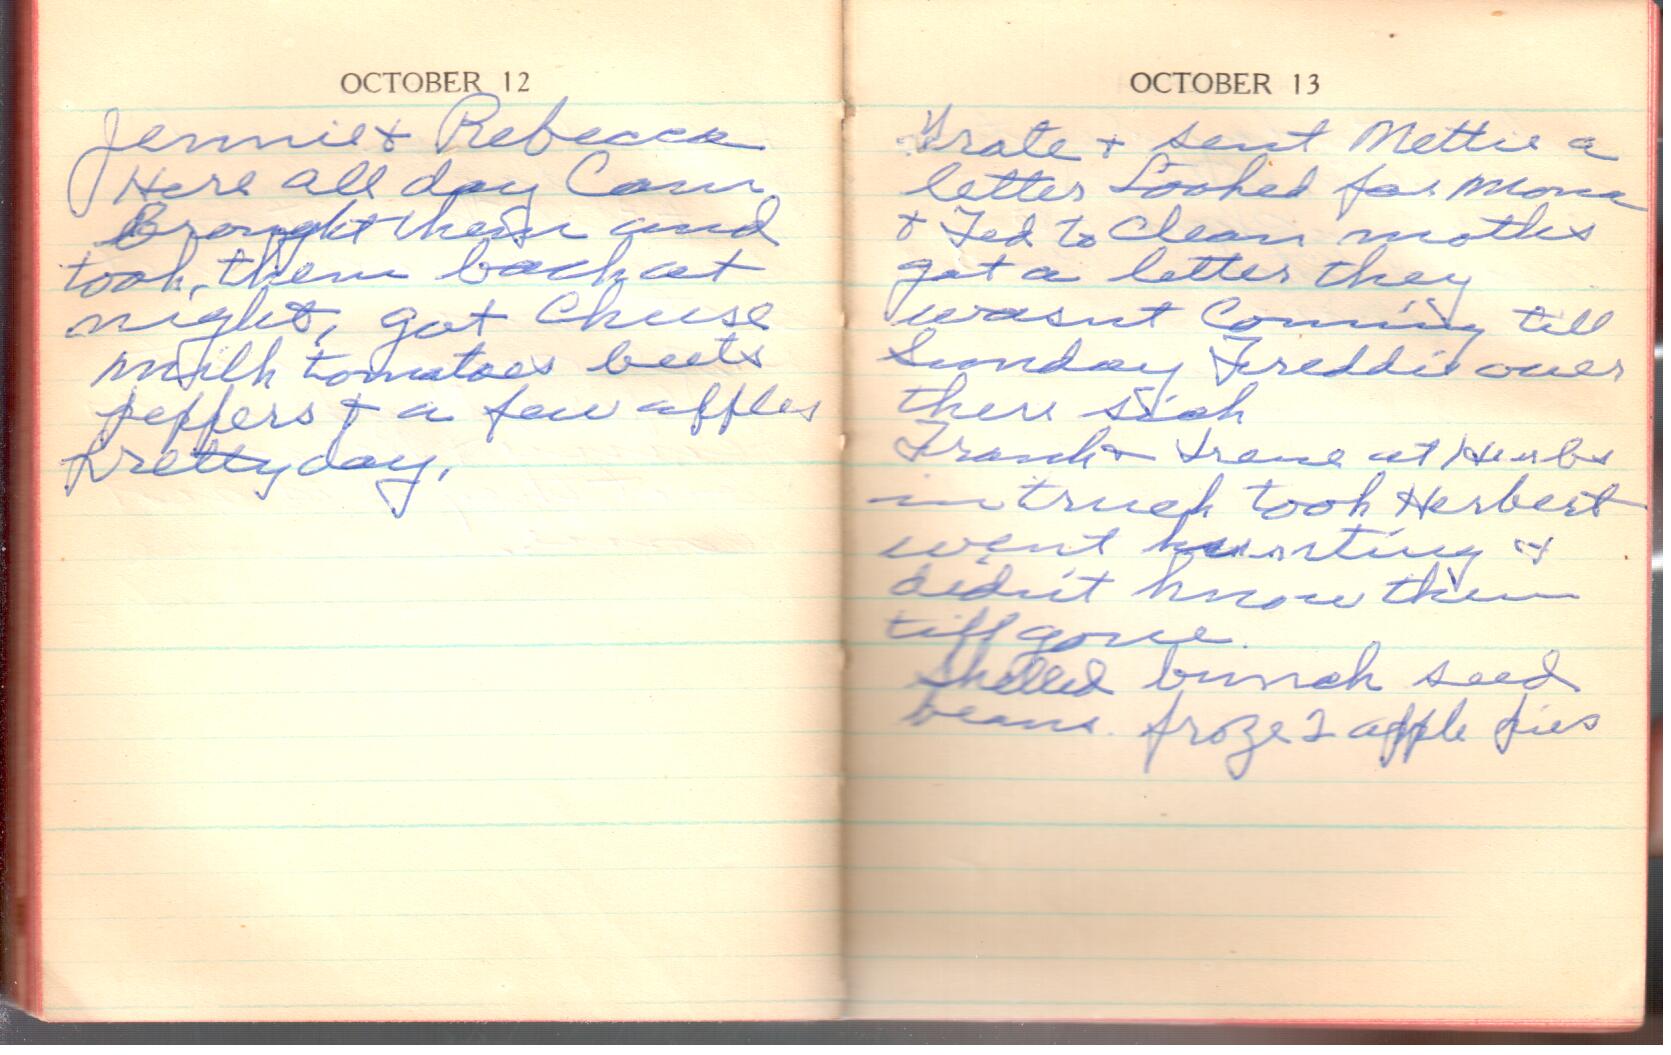 OCTOBER 12
Jennie & Rebecca
Here all day
Brought them and
took them back at
night, got Cheese
milk tomatoes beets
peppers & a few apples
pretty day.
OCTOBER 13
Wrote & sent Mettie a
letter Looked for Mona
& Ted to Clean
got a letter they
wasnt Coming till
Sunday Freddie over
there sick
Frank & Irene at Herbs
in truck took Herbert
went hunting &
didn't know them
till gone
Shelled bunch seed
beans. froze 2 apple pies